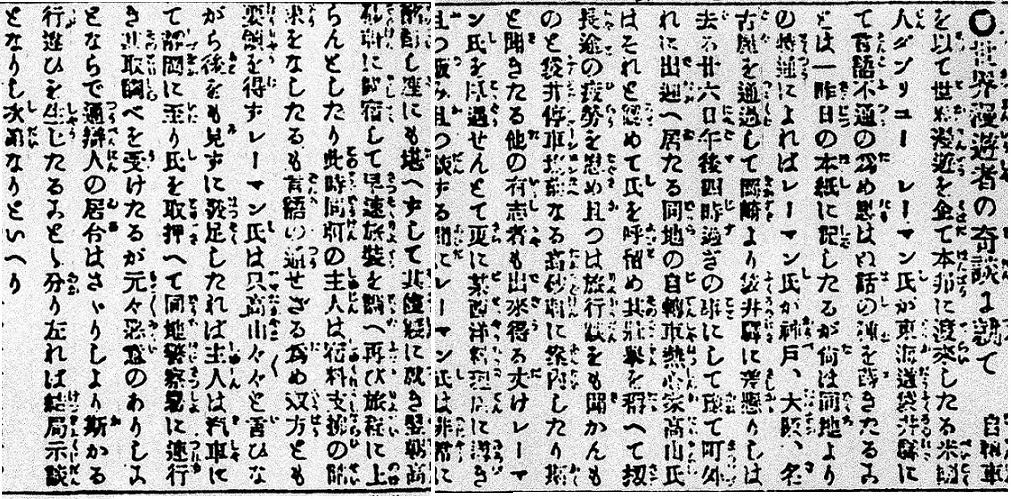 ○世界漫遊者の奇談に就て 自轉車
を以て世界漫遊を企て本邦に渡來したる米國
人ダンリユー レーマン氏が東海道袋井驛に
て言語不通の爲め思はぬ話の種を蒔きたるよ
しは一昨日の本紙に記したるが尚は同地より
の特通によればレーマン氏が神戸、大阪、名
古屋を通過して岡崎より袋井驛に差懸りしは
去る廿六日午後四時過ぎの事にして豫て町外
れに出迎へ居たる同地の自轉車熱心家高山氏
はそれと認めて氏を呼留め其壯擧を稱へて扨
長途の疲勞を慰め且つは旅行談をも聞かんも
のと袋井停車塲前なる高砂樓に案内したり斯
と聞きたる他の有志者も出來得る丈けレーマ
ン氏を厚遇せんとて更に某西洋料理店に導き
且つ飲み且つ談する間にレーマン氏は非常に
酩酊し座にも堪へずして其儘寢に就き翌朝高
砂樓に歸宿して早速旅裝を調へ再び旅程に上
らんとしたり此時同樓の主人は宿料支拂の請
求をなしたるも言語の通せざる爲め双方とも
要領を得ずレーマン氏は只高山々々と言ひな
がら後をも見ずに發足したれば主人は汽車に
て靜岡に至り氏を取押へて同地警察署に連行
き其取調べを受けたるが元々惡意のありしこ
とならで通辯人の居合はさゞりしより斯かる
行違ひを生じたるよし分り左れば結局示談
となりし次第なりといへり